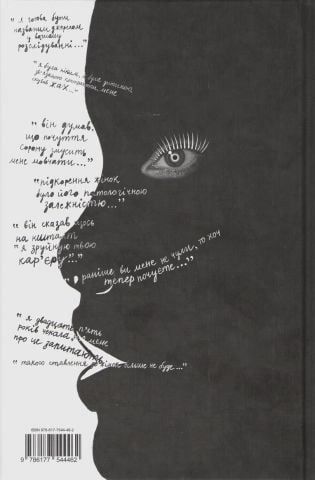 " я готова бути
названим джерелом
у вашому
розслідуванні..."
"я була ніким, я була дитиною
мене
жах..."
" він думав,
що почуття
сорому змусить
мене мовчати..."
"підкорення жінок
було його патологічною
залежністю..."
" він сказав щось
на кшталт
"я зруйную твою
кар'єру"!"
" раніше ви мене не чули, то хоч
тепер почуєте..."
" я двадцять п'ять
років чекала, мене
про це запитають"
" такого ставлення до більше не буде..."
ISBN 978-617-7544-46-2
9 786177 544462